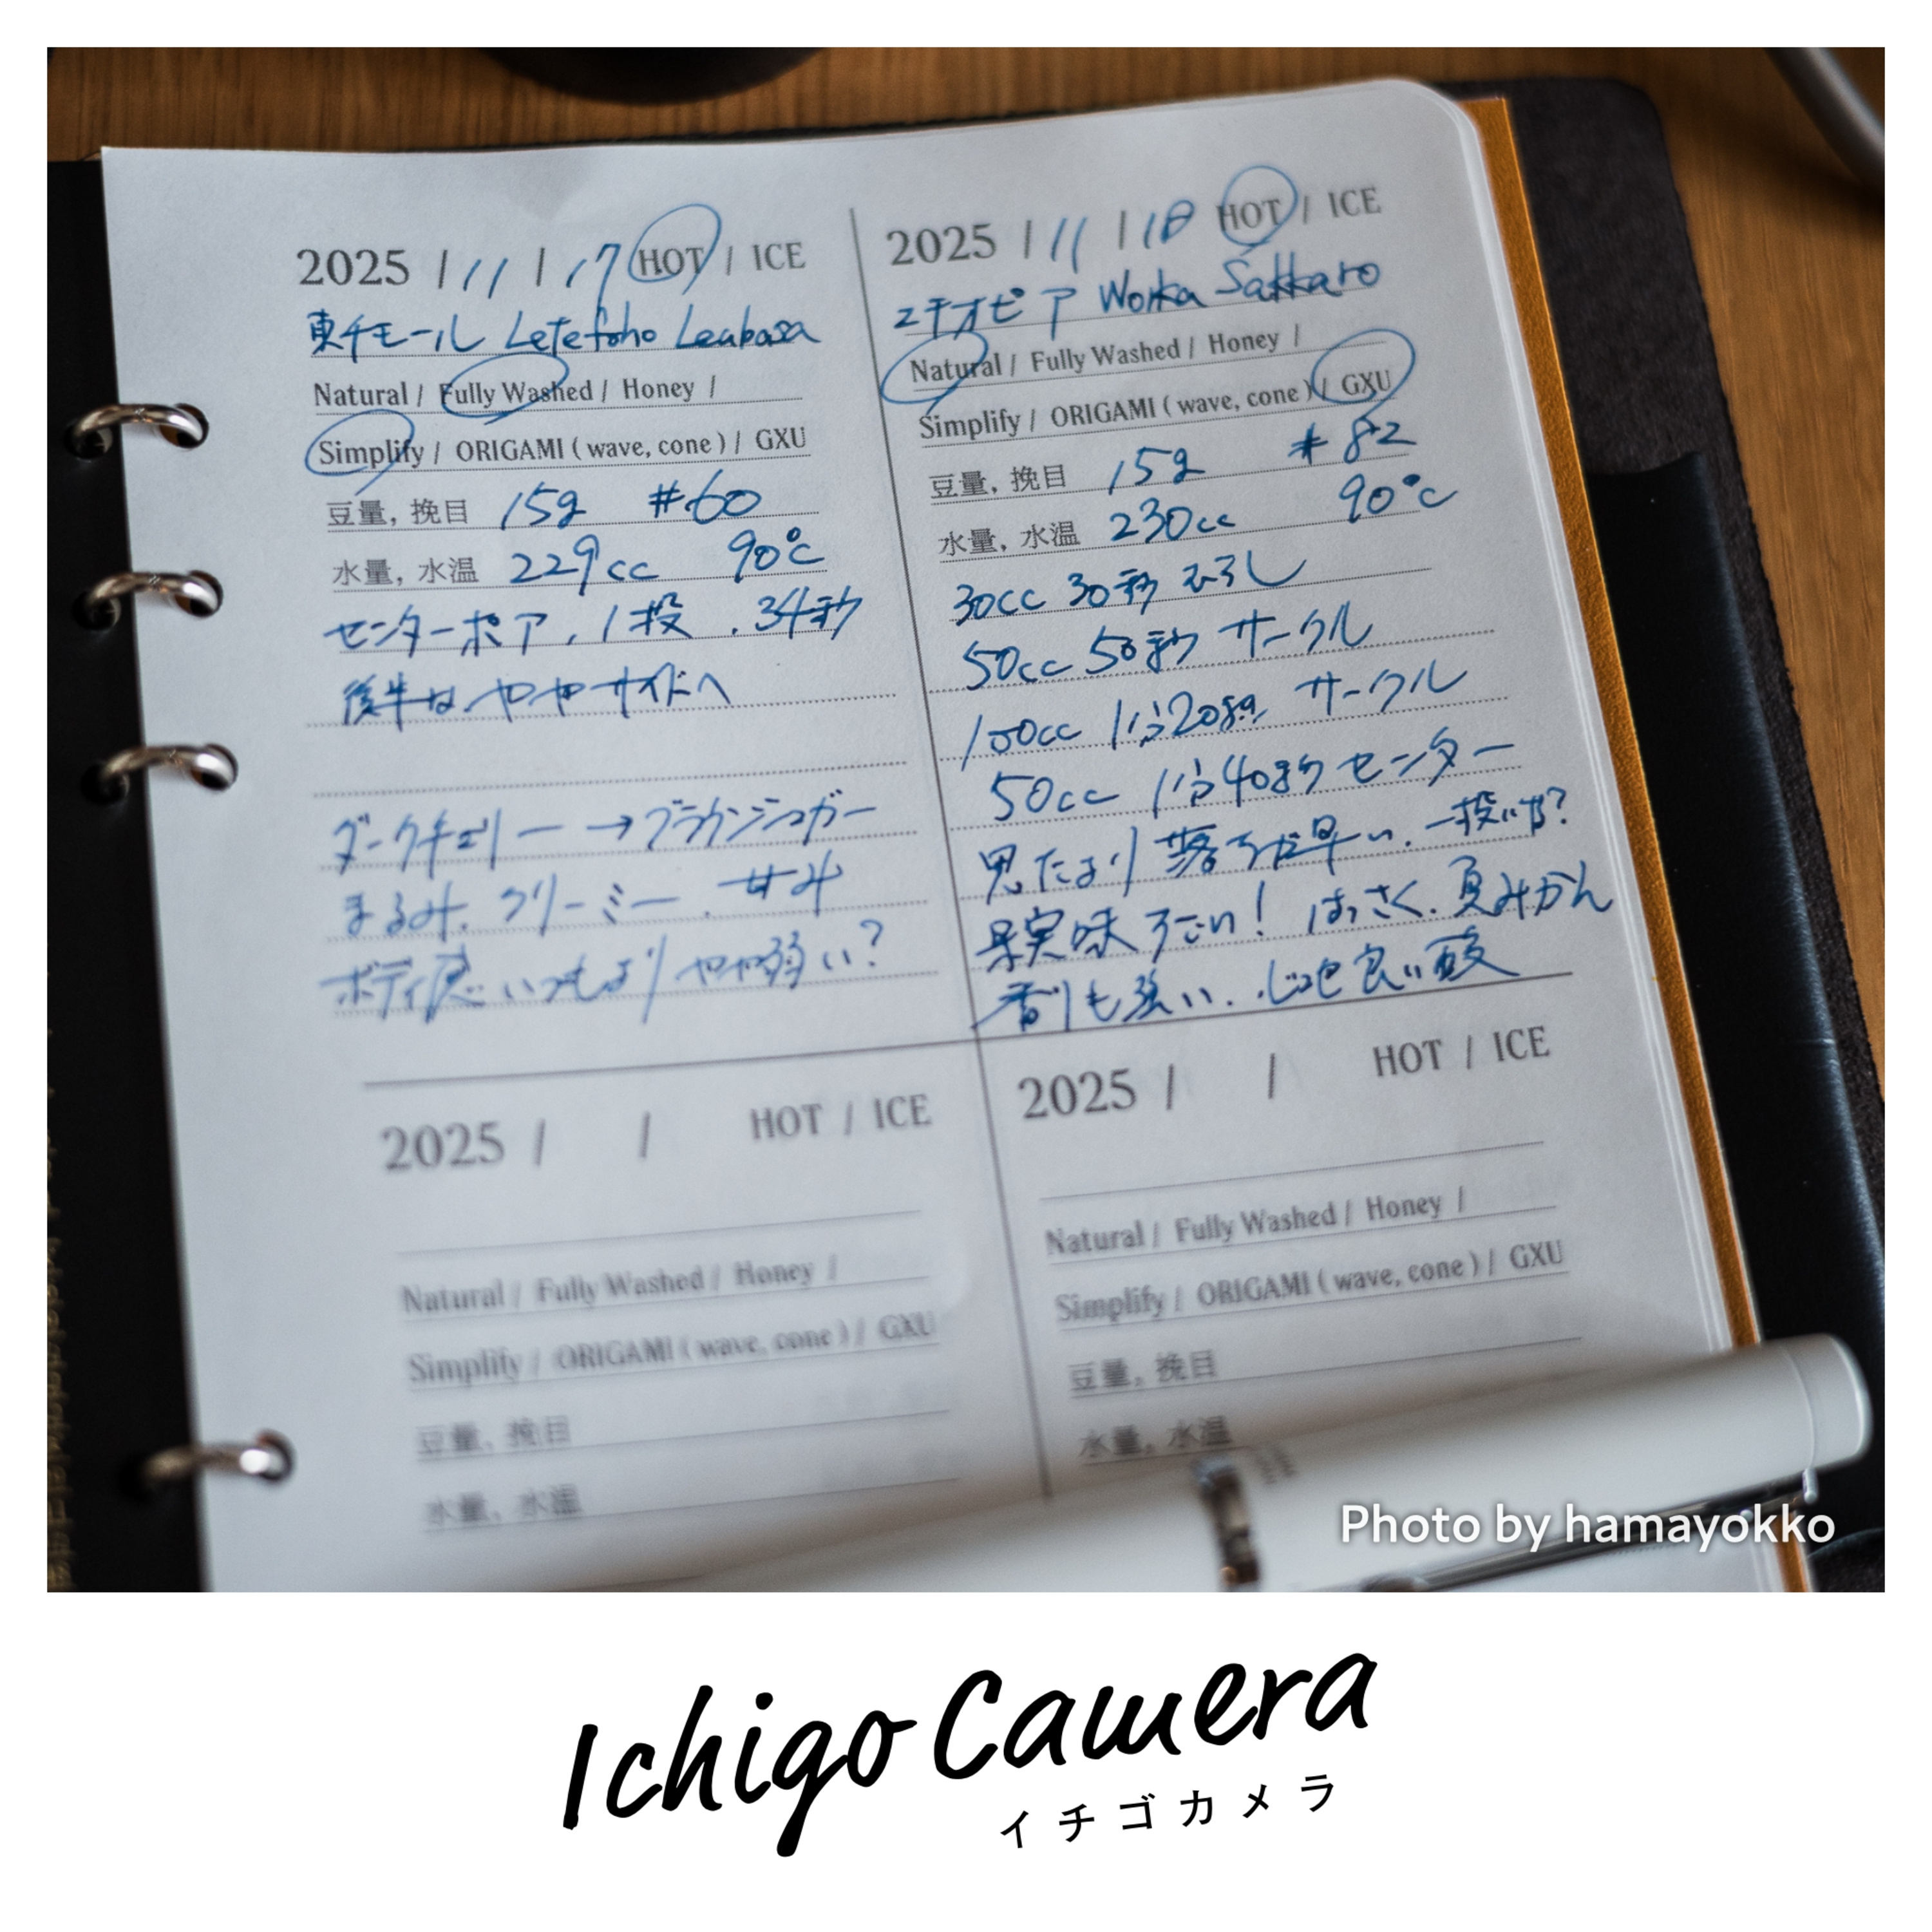 2025 / 11 / 17 HOT / ICE
東チモール Letefoho Leubasa
Natural / Fully Washed / Honey /
Simplify / ORIGAMI ( wave, cone ) / GXU
豆量, 挽目 15g #60
水量, 水温 229cc 90℃
センターポア、1投、34秒
後半はややサイドへ
ダークチェリー → ブラウンシュガー
まるみ、クリーミー、甘み
ボディ感いつもよりやや弱い?
2025 / 11 / 18 HOT / ICE
エチオピア Worka Sakkaro
Natural / Fully Washed / Honey /
Simplify / ORIGAMI ( wave, cone ) / GXU
豆量, 挽目 15g #82
水量, 水温 230cc 90℃
30cc 30秒 むらし
50cc 50秒 サークル
100cc 1分20秒 サークル
50cc 1分40秒 センター
思たより落ちが早い、一投いや?
果実味すごい! はっさく、夏みかん
香りも強い、良い酸
2025 / / HOT / ICE
Natural / Fully Washed / Honey /
Simplify / ORIGAMI ( wave, cone ) / GXU
豆量, 挽目
水量, 水温
2025 / / HOT / ICE
Natural / Fully Washed / Honey /
Simplify / ORIGAMI ( wave, cone ) / GXU
豆量, 挽目
水量, 水温
Photo by hamayokko
Ichigo Camera
イチゴカメラ